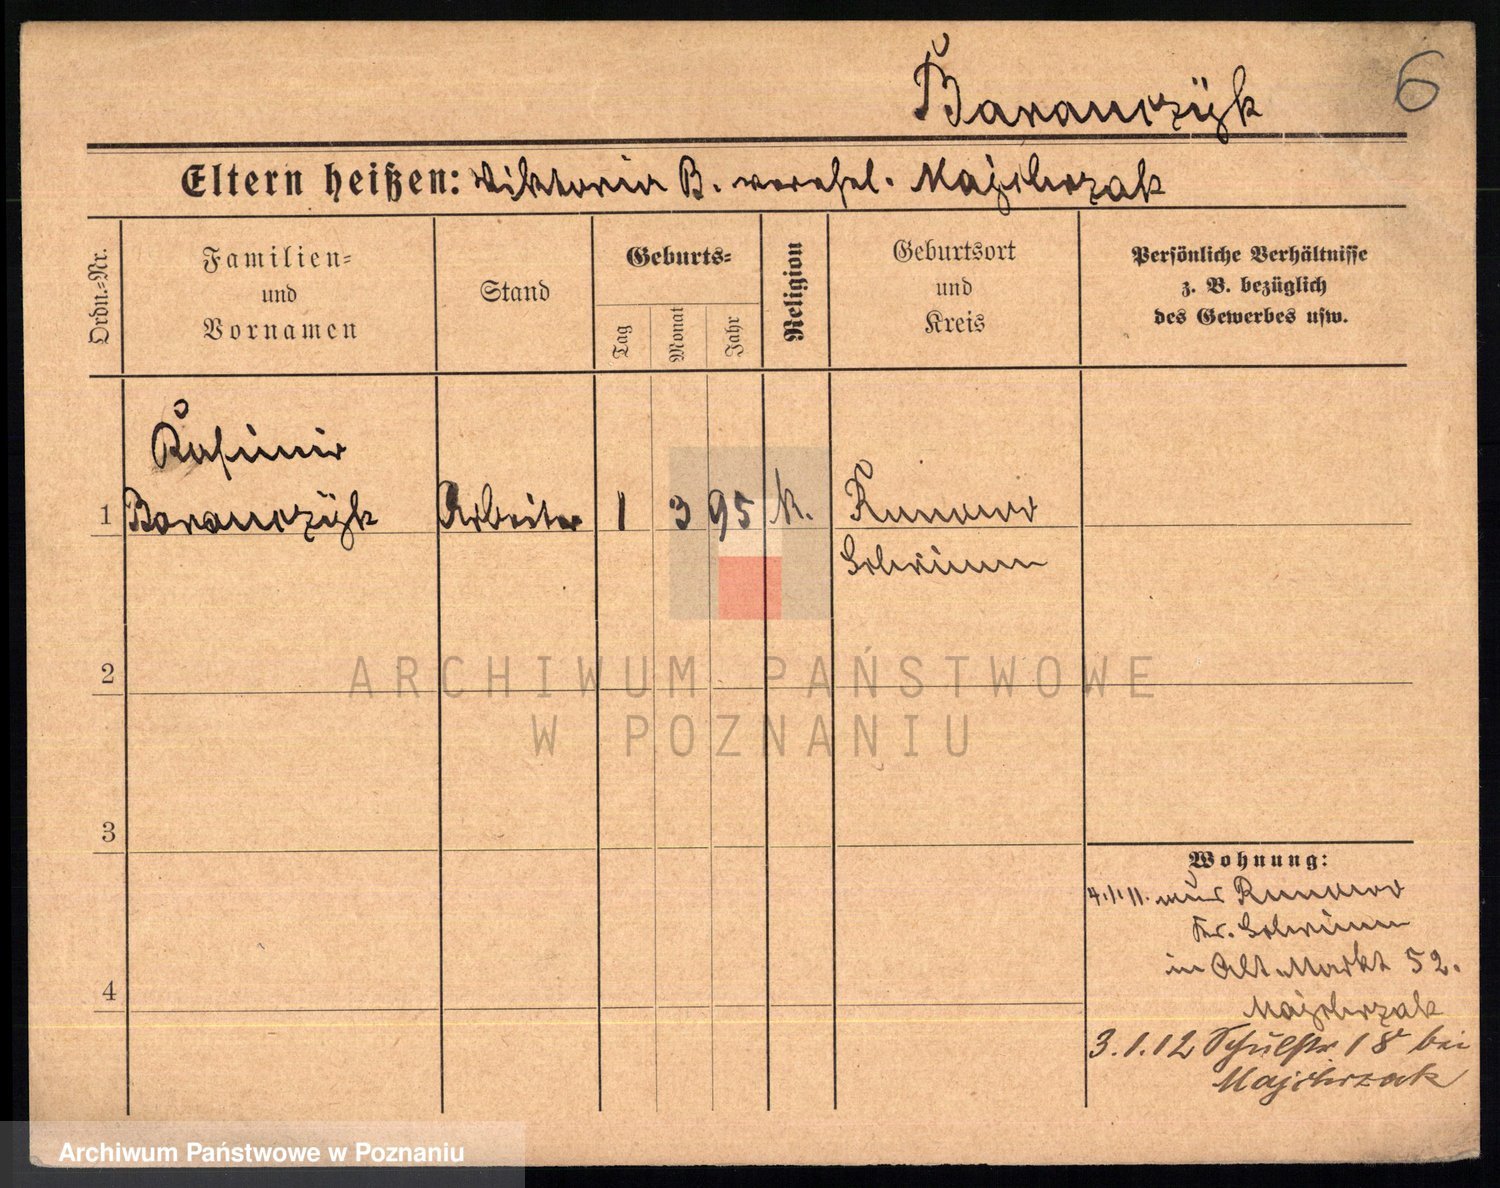 Baranczÿk
6
Eltern heißen: Viktoria B. verehel. Majchrzak
Ordn.-Nr.
Familien- und Vornamen
Stand
Geburts-
Tag
Monat
Jahr
Religion
Geburtsort und Kreis
Persönliche Verhältnisse
z. B. bezüglich
des Gewerbes usw.
Kasimir
1 Baranczÿk Arbeiter 1 3 95 k. Runowo
Schrimm
2
3
4
Wohnung:
4.1.11. aus Runowo
Kr. Schrimm
in Alt. Markt 52.
Majchrzak
3.1.12 Schulstr 18 bei
Majchrzak
ARCHIWUM PAŃSTWOWE
W POZNANIU
Archiwum Państwowe w Poznaniu